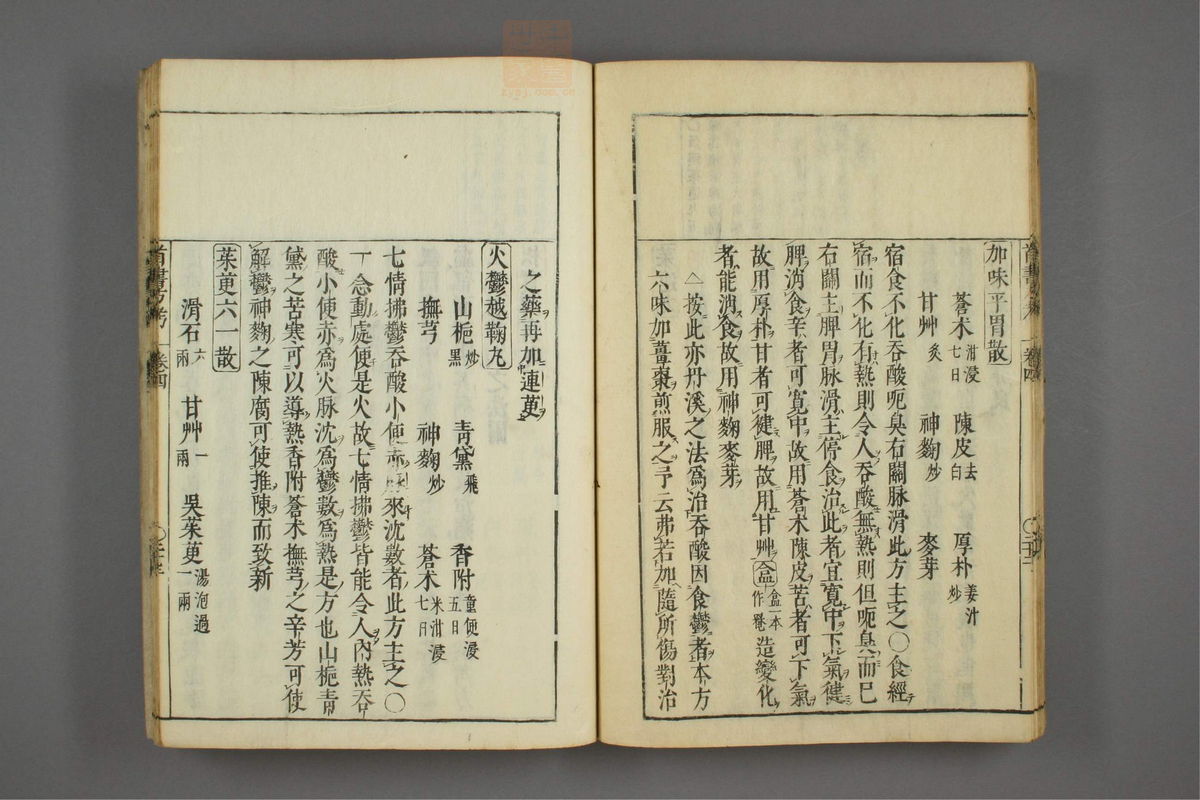 加味平胃散
蒼术泔浸七日 陳皮去白 厚朴姜汁炒
甘艸炙 神麴炒 麥芽
宿食不化吞酸呃臭右關脉滑此方主之〇食經
宿而不化有熱則令人吞酸無熱則但呃臭而已
右關主脾胃脉滑主停食治此者宜寬中下氣健
脾消食辛者可寬中故用蒼术陳皮苦者可下氣
故用厚朴甘者可健脾故用甘艸盒盒一本作造變化
者能消食故用神麴麥芽
△按此亦丹溪之法爲治吞酸因食鬱者本方
六味加薑棗煎服之予云弗若加隨所傷對治
之藥再加連茰
火鬱越鞠丸
山梔炒黑 青黛飛 香附童便浸五日
撫芎 神麴炒 蒼术米泔浸七日
七情拂鬱吞酸小便赤來沈數者此方主之〇
丅念動處便是火故七情拂鬱皆能令人內熱吞
酸小便赤爲火脉沈爲鬱數爲熱是方也山梔青
黛之苦寒可以導熱香附蒼术撫芎之辛芳可使
解鬱神麴之陳腐可使推陳而致新
茱茰六一散
滑石六兩 甘艸一兩 吳茱茰湯泡過一兩
首書方考 卷四